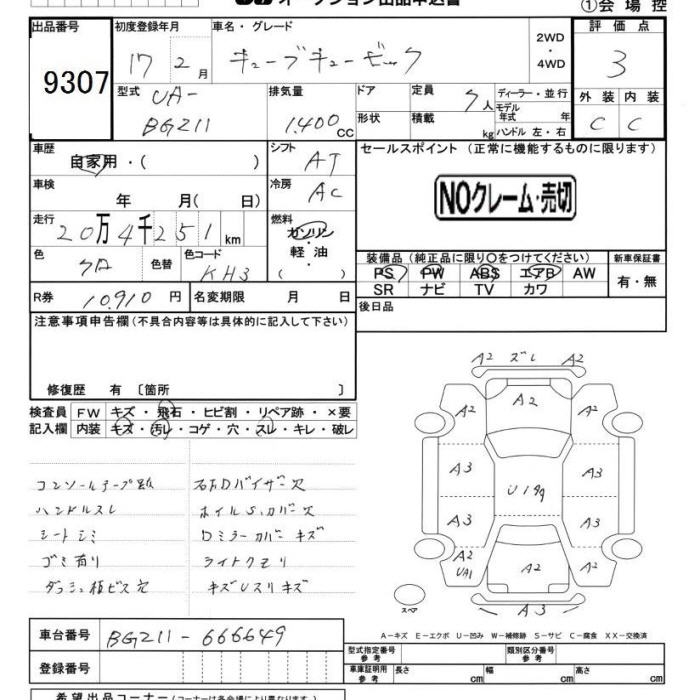 オークション出品申込書
①会場控
出品番号
9307
初度登録年月
17 2月
車名・グレード
キューブキュービック
2WD
・
4WD
評価点
3
型式
UA-
BGZ11
排気量
1.400 cc
ドア
形状
定員
7人
積載
kg
ディーラー・並行
モデル年式 年
ハンドル 左・右
外装 内装
C C
車歴
自家用・( )
シフト
AT
セールスポイント (正常に機能するものに限ります)
NOクレーム・売切
車検
年 月( 日)
冷房
AC
走行
20万4千251km
燃料
ガソリン
・
軽油
( )
色
色替
色コード
KH3
装備品 (純正品に限り○をつけてください)
新車保証書
PS PW ABS エアB AW
SR ナビ TV カワ
有・無
R券
10.910 円
名変期限 月 日
後日品
注意事項申告欄 (不具合内容等は具体的に記入して下さい)
修復歴 有 〔箇所 〕
検査員
記入欄
FW キズ・飛石・ヒビ割・リペア跡・×要
内装 キズ・汚レ・コゲ・穴・スレ・キレ・破レ
ハンドルスレ
シートシミ
ゴミ有り
ダッシュ板ビス穴
ホイルS,カバー欠
Dミラーカバーキズ
ライトクモリ
A2 ズレ A2
A2 A2 A2
A3 A3
U199
A3 A3
A2
UA1 A2 A2
A3
スペア
A-キズ E-エクボ U-凹み W-補修跡 S-サビ C-腐食 XX-交換済
車台番号
BGZ11-666649
登録番号
型式指定番号
参考
類別区分番号
参考
車庫証明用
参考
長さ cm 幅 cm 高さ cm
希望出品コーナー (コーナーは各会場により異なります。)